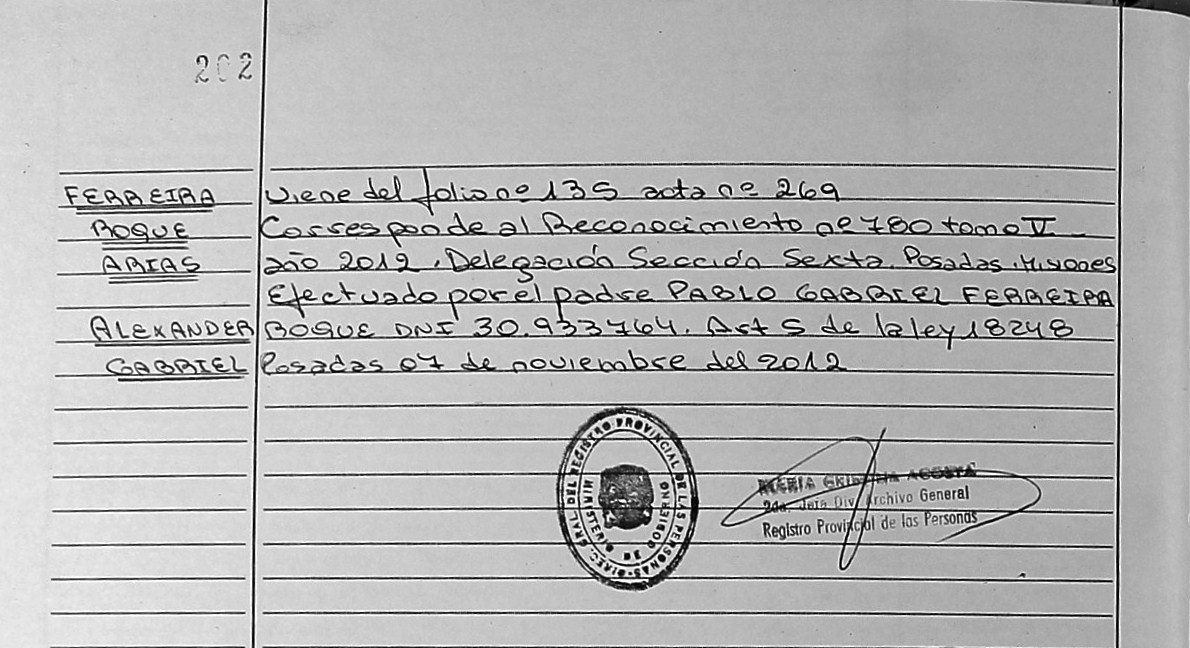 202
FERREIRA Viene del folio nº 135 acta nº 269
ROQUE Corresponde al Reconocimiento nº 780 tomo V
ARIAS año 2012. Delegación Sección Sexta. Posadas. Misiones
Efectuado por el padre PABLO GABRIEL FERREIRA
ALEXANDER ROQUE DNI 30.933764. Art 5 de la ley 18248
GABRIEL Posadas 07 de noviembre del 2012
DIREC. GRAL DEL REGISTRO PROVINCIAL DE LAS PERSONAS
MINISTERIO DE GOBIERNO
MARIA ACOSTA
2da. Jefa Div. Archivo General
Registro Provincial de las Personas